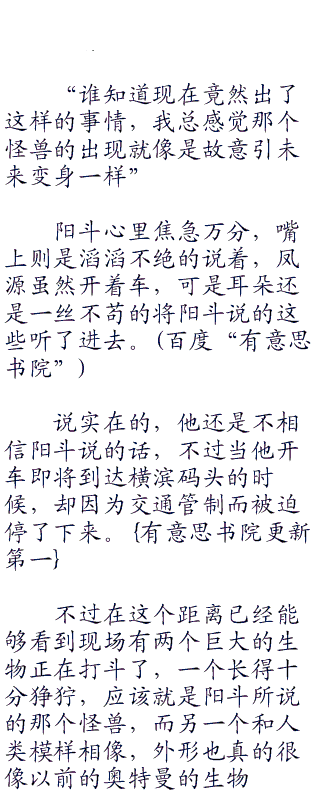 “谁知道现在竟然出了
这样的事情，我总感觉那个
怪兽的出现就像是故意引未
来变身一样”
阳斗心里焦急万分，嘴
上则是滔滔不绝的说着，凤
源虽然开着车，可是耳朵还
是一丝不苟的将阳斗说的这
些听了进去。（百度“有意思
书院”）
说实在的，他还是不相
信阳斗说的话，不过当他开
车即将到达横滨码头的时
候，却因为交通管制而被迫
停了下来。{有意思书院更新
第一}
不过在这个距离已经能
够看到现场有两个巨大的生
物正在打斗了，一个长得十
分狰狞，应该就是阳斗所说
的那个怪兽，而另一个和人
类模样相像，外形也真的很
像以前的奥特曼的生物